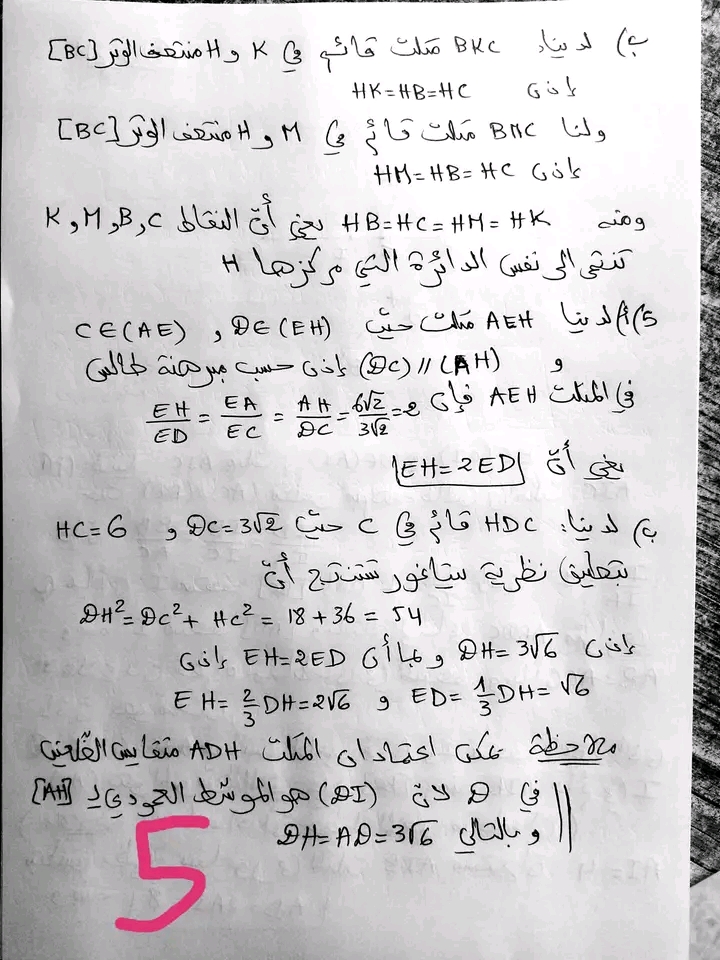 ب) لدينا: BKC مثلث قائم في K و H منتصف الوتر [BC]
إذن HK=HB=HC
ولنا BMC مثلث قائم في M و H منتصف الوتر [BC]
إذن HM=HB=HC
ومنه HB=HC=HM=HK يعني أنّ النقاط K, M, B, C
تنتمي الى نفس الدائرة التي مركزها H
5) أ) لدينا AEH مثلث حيث D∈(EH) , C∈(AE)
و (DC)//(AH) إذن حسب مبرهنة طالس
في المثلث AEH فإن EH/ED = EA/EC = AH/DC = 6√2/3√2 = 2
يعني أنّ EH=2ED
ب) لدينا: HDC قائم في C حيث DC=3√2 و HC=6
بتطبيق نظرية بيتاغور نستنتج أنّ
DH²=DC²+HC²=18+36=54
إذن DH=3√6 و بما أن EH=2ED إذن
EH=2/3DH=2√6 و ED=1/3DH=√6
ملاحظة يمكن اعتماد ان المثلث ADH متقايس الضلعين
في D لانّ (DI) هو الموسّط العمودي لـ [AH]
و بالتالي DH=AD=3√6
5